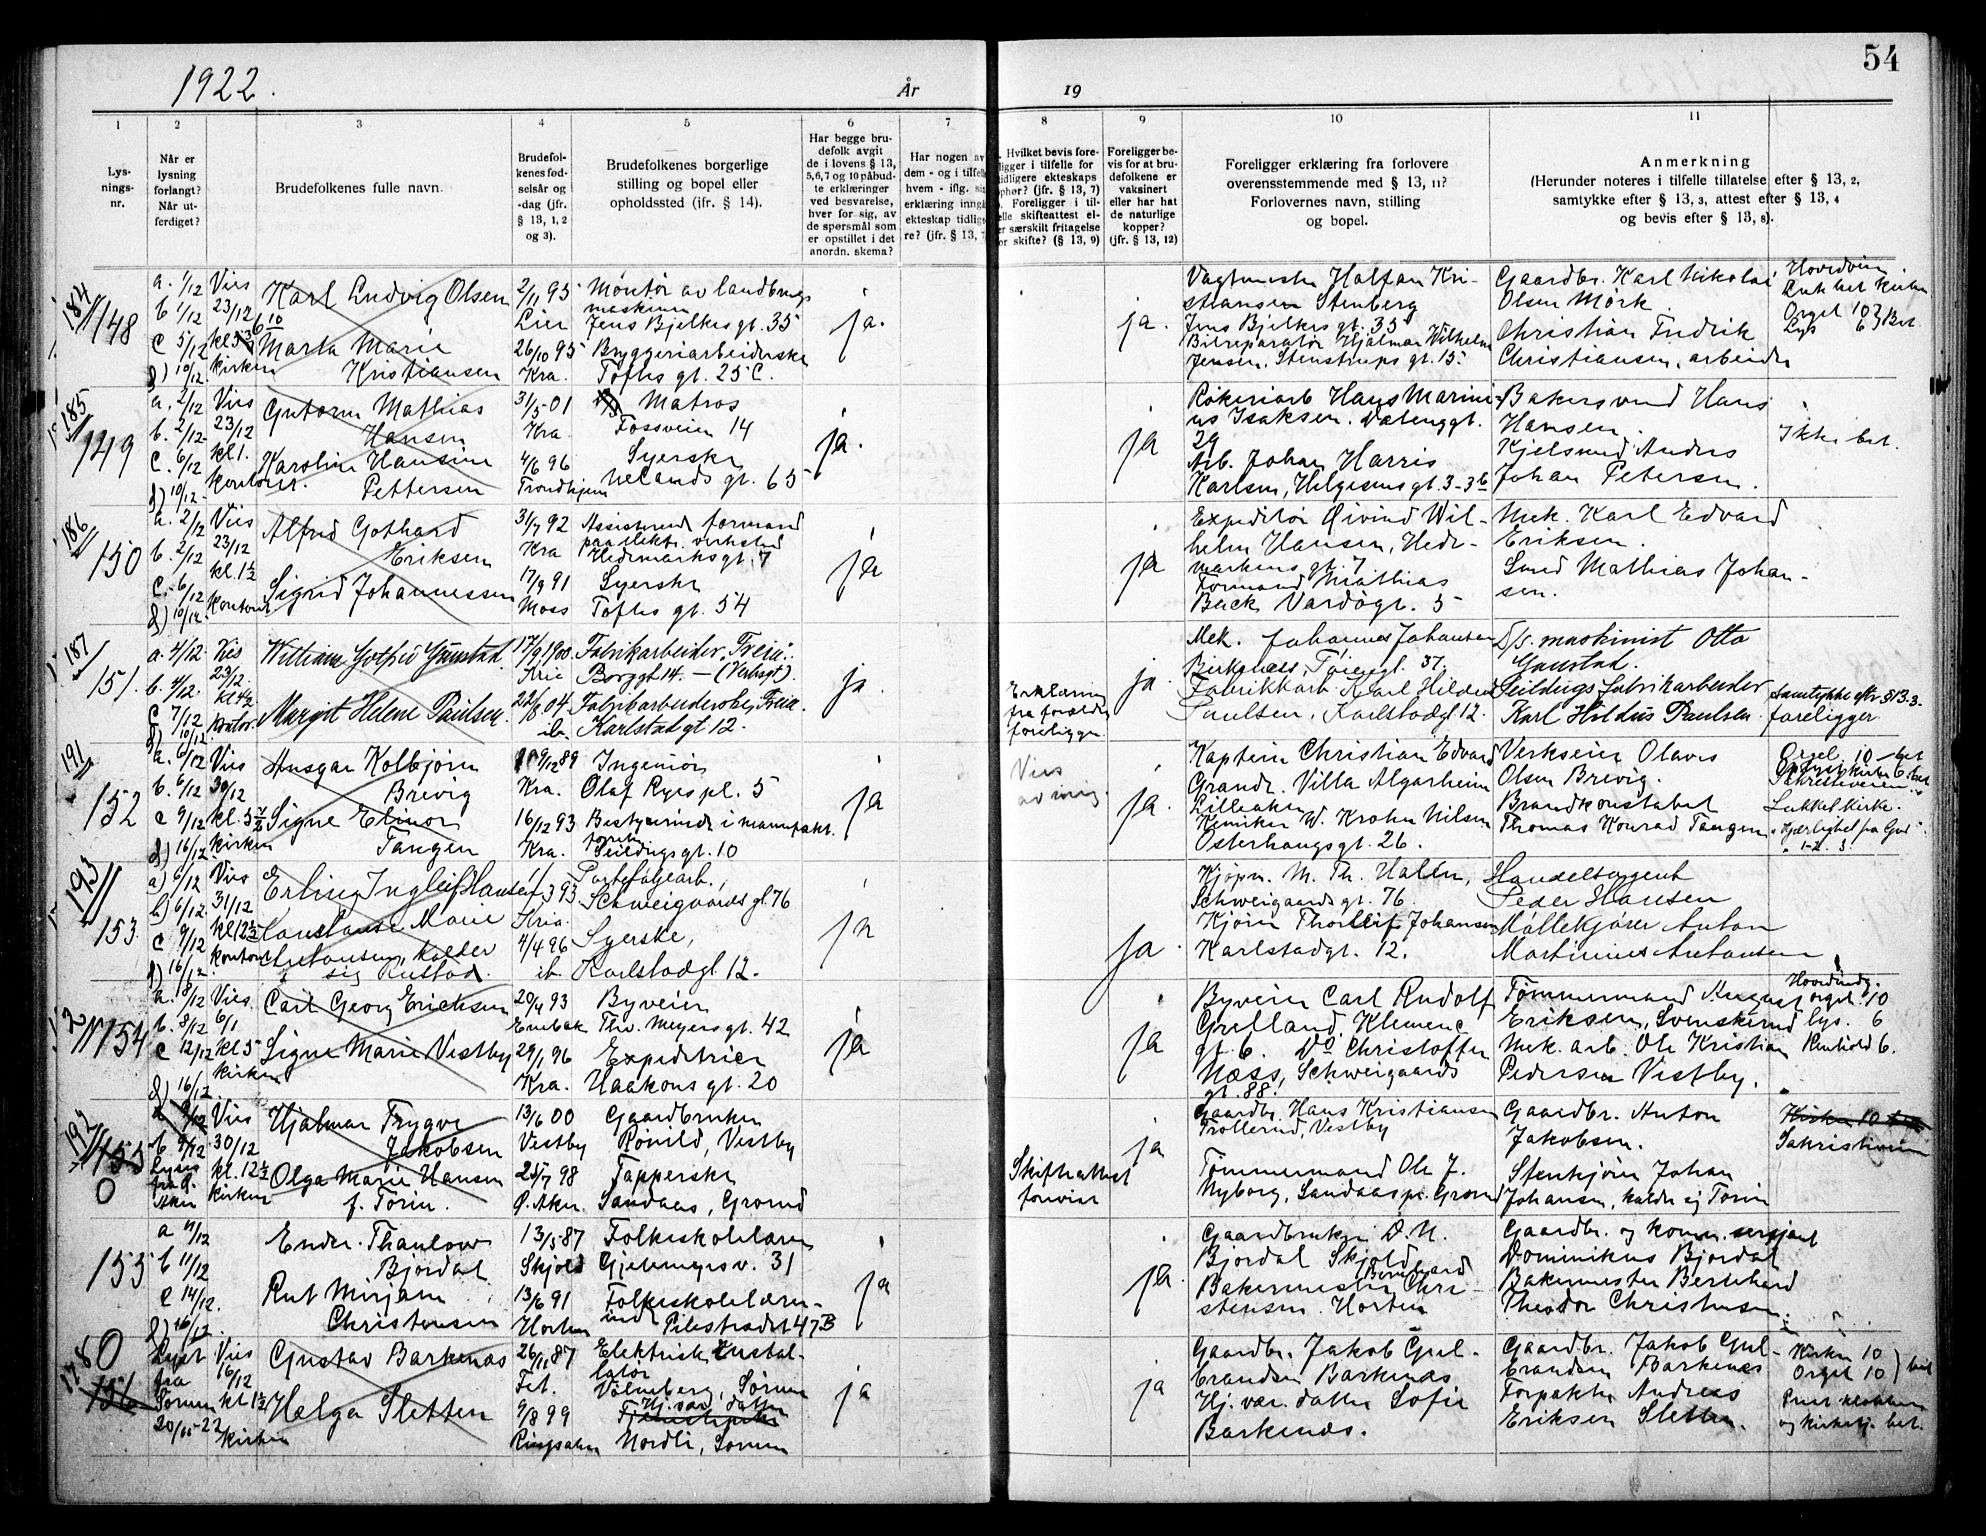 54
1922.
År
19
1
2
3
4
5
6
7
8
9
10
11
Lysningsnr.
Når er lysning forlangt? Når utferdiget?
Brudefolkenes fulle navn.
Brudefolkenes fødselsår og -dag (jfr. § 13, 1, 2 og 3).
Brudefolkenes borgerlige stilling og bopel eller opholdssted (jfr. § 14).
Har begge brudefolk avgit de i lovens § 13, 5, 6, 7 og 10 påbudte erklæringer ved besvarelse, hver for sig, av de spørsmål som er opstillet i det anordn. skema?
Har nogen av
dem - og i tilfelle
hvem - iflg. sig
erklæring inngå
ekteskap tidlige
re? (jfr. § 13, 7
Hvilket bevis fore-
ligger i tilfelle for
tidligere ekteskaps
ophør? (jfr. § 13, 7)
Foreligger i til-
elle skifteattest el-
er særskilt fritagelse
or skifte? (§ 13, 9)
Foreligger bevis for at brudefolkene er vaksinert eller har hat de naturlige kopper? (jfr. § 13, 12)
Foreligger erklæring fra forlovere
overensstemmende med § 13, 11?
Forlovernes navn, stilling
og bopel.
Anmerkning
(Herunder noteres i tilfelle tillatelse efter § 13, 2,
samtykke efter § 13, 3, attest efter § 13, 4
og bevis efter § 13, 8).
184
148
a. 1/12 Vies
b 1/12 23/12
c 5/12
d) 10/12. kirken
Karl Ludvig Olsen
Marta Marie
Kristiansen
2/11 95
Lier
26/10 95
Kra.
Montør av landbrugs
maskiner
Jens Bjelkes gt. 35
Bryggeriarbeiderske
Toftes gt. 25 C.
ja.
ja.
Vagtmester Halfan Kri-
stiansen Stenberg
Jens Bjelkes gt. 35
Bilreparatør Hjalmar Wilhelm
Jensen, Stenstrups gt. 15
Gaardbr. Karl Nikolai
Olsen Mørk
Christian Fredrik
Christiansen, arbeider
Orgel 10
Lys 6 } Bet.
185
149
a. 2/12 Vies
b. 2/12 23/12
c. 6/12 kl 1.
d) 10/12 kontoret.
Gutorm Mathias
Hansen
Karoline Hansine
Pettersen
31/5-01
Kra.
4/6 96
Trondhjem
Matros
Fossveien 14
Syerske
Uelands gt. 65
ja.
ja
Røkeriarb Hans Marini-
us Isaksen. Vaalenggt.
29
Arb. Johan Harris
Karlsen, Helgesensgt. 3-3b
Bakersvend Hans
Hansen.
Kjelsmed Anders
Johan Petersen.
Ikke bet.
186
150
a. 2/12 Vies
b. 2/12 23/12
c. 6/12 kl. 1½
d) 10/12 kontoret
Alfred Gothard
Eriksen
Sigrid Johannessen
31/7 92
Kra
17/9 91
Moss
Assisterende formand
paa elektr. verksted
Hedemarks gt. 7
Syerske
Toftes gt. 54
ja
ja
Expeditør Øivind Wil-
helm Hansen, Hede-
markens gt. 7
Formand Mathias
Beck Vardøgt. 5
Mek. Karl Edvard
Eriksen.
Smed Mathias Johan-
sen.
187
151.
a. 4/12 Vies
b. 4/12. 23/12.
c 7/12 kl 4½
d) 10/12. kontor.
William Gotfred Gunstad
Margit Helene Paulsen.
17/9 1900
Kria
22/8 04
ib.
Fabrikarbeider, Freia.
Borggt 14. — (Verksgt).
Fabrikarbeiderske, Freia
Karlstadgt 12.
ja.
Erklæring
fra forældre
foreligger
ja.
Mek. Johannes Johansen
Berkenæss, Tøiengt. 37.
Fabrikkarb. Karl Hildus
Paulsen, Karlstadgt 12.
D/s. maskinist Otto
Gunstad.
Seildugsfabrikarbeider
Karl Hildus Paulsen.
Samtykke eftr. § 13-3-
foreligger
191
152
a. 6/12 Vies
b. 6/12 30/12
c 9/12
d) 16/12. kirken
Ansgar Kolbjørn
Brevig
Signe Elinor
Tangen
9/12 89
Kra.
16/12 93
Kra.
Ingeniør
Olaf Ryes pl. 5
Bestyrerinde i manufakt.
forretn.
Seildugs gt. 10
ja
Vies
av mig.
ja.
Kaptein Christian Edvard
Grandt. Villa Algarheim
Lilleaker
Kemiker W. Krohn Nilsen
Osterhausgt. 26.
Verkseier Olaves
Olsen Brevig.
Brandkonstabel
Thomas Konrad Tangen
Orgel 10 — bet
Sakristiveien.
Lukket kirke.
"Kjærlighet fra Gud"
1-2. 3.
193
153.
a) 6/12 Vies
b) 6/12. 31/12
c 9/12 kl 12½
d) 16/12. kontoret
Erling Ingleif Hansen
Constanse Marie
Antonsen, kalder
sig Rustad.
1/3 93
Kria.
4/4 96
ib.
Portefølgearb.,
Schweigaards gt 76
Syerske,
Karlstadgt 12.
ja
ja.
Kjøpm. M. Th. Hallen,
Schweigaards gt. 76.
Kjører Thorleif Johansen
Karlstadgt. 12.
Handelsagent
Peder Hansen
Møllekjører Anton
Martinius Antonsen
154
a. 8/12 Vies.
b. 8/12 6/1
c 12/12 kl 5
d) 16/12. kirken
Carl Georg Ericksen
Signe Marie Vestby
20/4 93
Enebak
29/1 96
Kra.
Byveier
Thv. Meyers gt. 42
Expeditrise
Haakons gt. 20
ja
ja
Byveier Carl Rudolf
Grefland, Klemenc
gt. 6. Do Christoffer
Næss, Schweigaards
gt. 88.
Tømmermand August
Eriksen, Svenskerud
Mek. arb. Ole Kristian
Pedersen Vestby.
orgel. 10
lys. 6
Renhold 6.
192
155
0
a 9/12 Vies
b 9/12 30/12
Lyses kl. 12½
fra Ø. kirken
Aker
Hjalmar Trygve
Jakobsen
Olga Marie Hansen
f. Torin.
13/6 00
Vestby
25/7 98
Ø. Aker.
Gaardbruker
Romild, Vestby
Tapperske
Sandaas, Grorud
Skifteattest
forevist
ja
Gaardbr. Hans Kristiansen
Trollerud, Vestby
Tømmermand Ole J.
Nyborg, Sandaas pr. Grorud
Gaardbr. Anton
Jakobsen.
Stenkjører Johan
Johansen, kalder sig Torin
Kirken 10
Sakristiveien
155
a 11/12
b 11/12
c 14/12.
d) 16/12.
Endre Thanlow
Bjordal
Rut Mirjam
Christensen
13/5-87
Skjold
13/6 91
Horten
Folkeskolelærer
Gjetemyrsv. 31
Folkeskolelærer-
inde Pilestrædet 47 B
ja
ja.
Gaardbruker D. N.
Bjordal Skjold
Bakermester Bernhard Chri-
stensen. Horten
Gaardbr. og komm. sersjant
Dominikus Bjordal
Bakermester Bernhard
Theodor Christensen.
178
0
156
Lyst Vies
fra 16/12
Sørum kl 1½
20/11-22 kirken
Gustav Barkenæs
Helga Sletten
26/11 87
Fet.
9/8 99
Ringsaker
Elektrisk instal-
latør
Volmberg, Sørum
Hj. vær. datter
Nordli, Sørum
ja
ja
Gaardbr. Jakob Gul-
brandsen Barkenæs
Hj. vær. datter Sofie
Barkenæs.
Gaardbr. Jakob Gul-
brandsen Barkenæs
Forpakter Andreas
Eriksen Sletten.
Kirken 10
Orgel 10 } bet
Prest klokker
og kirketj. bet.